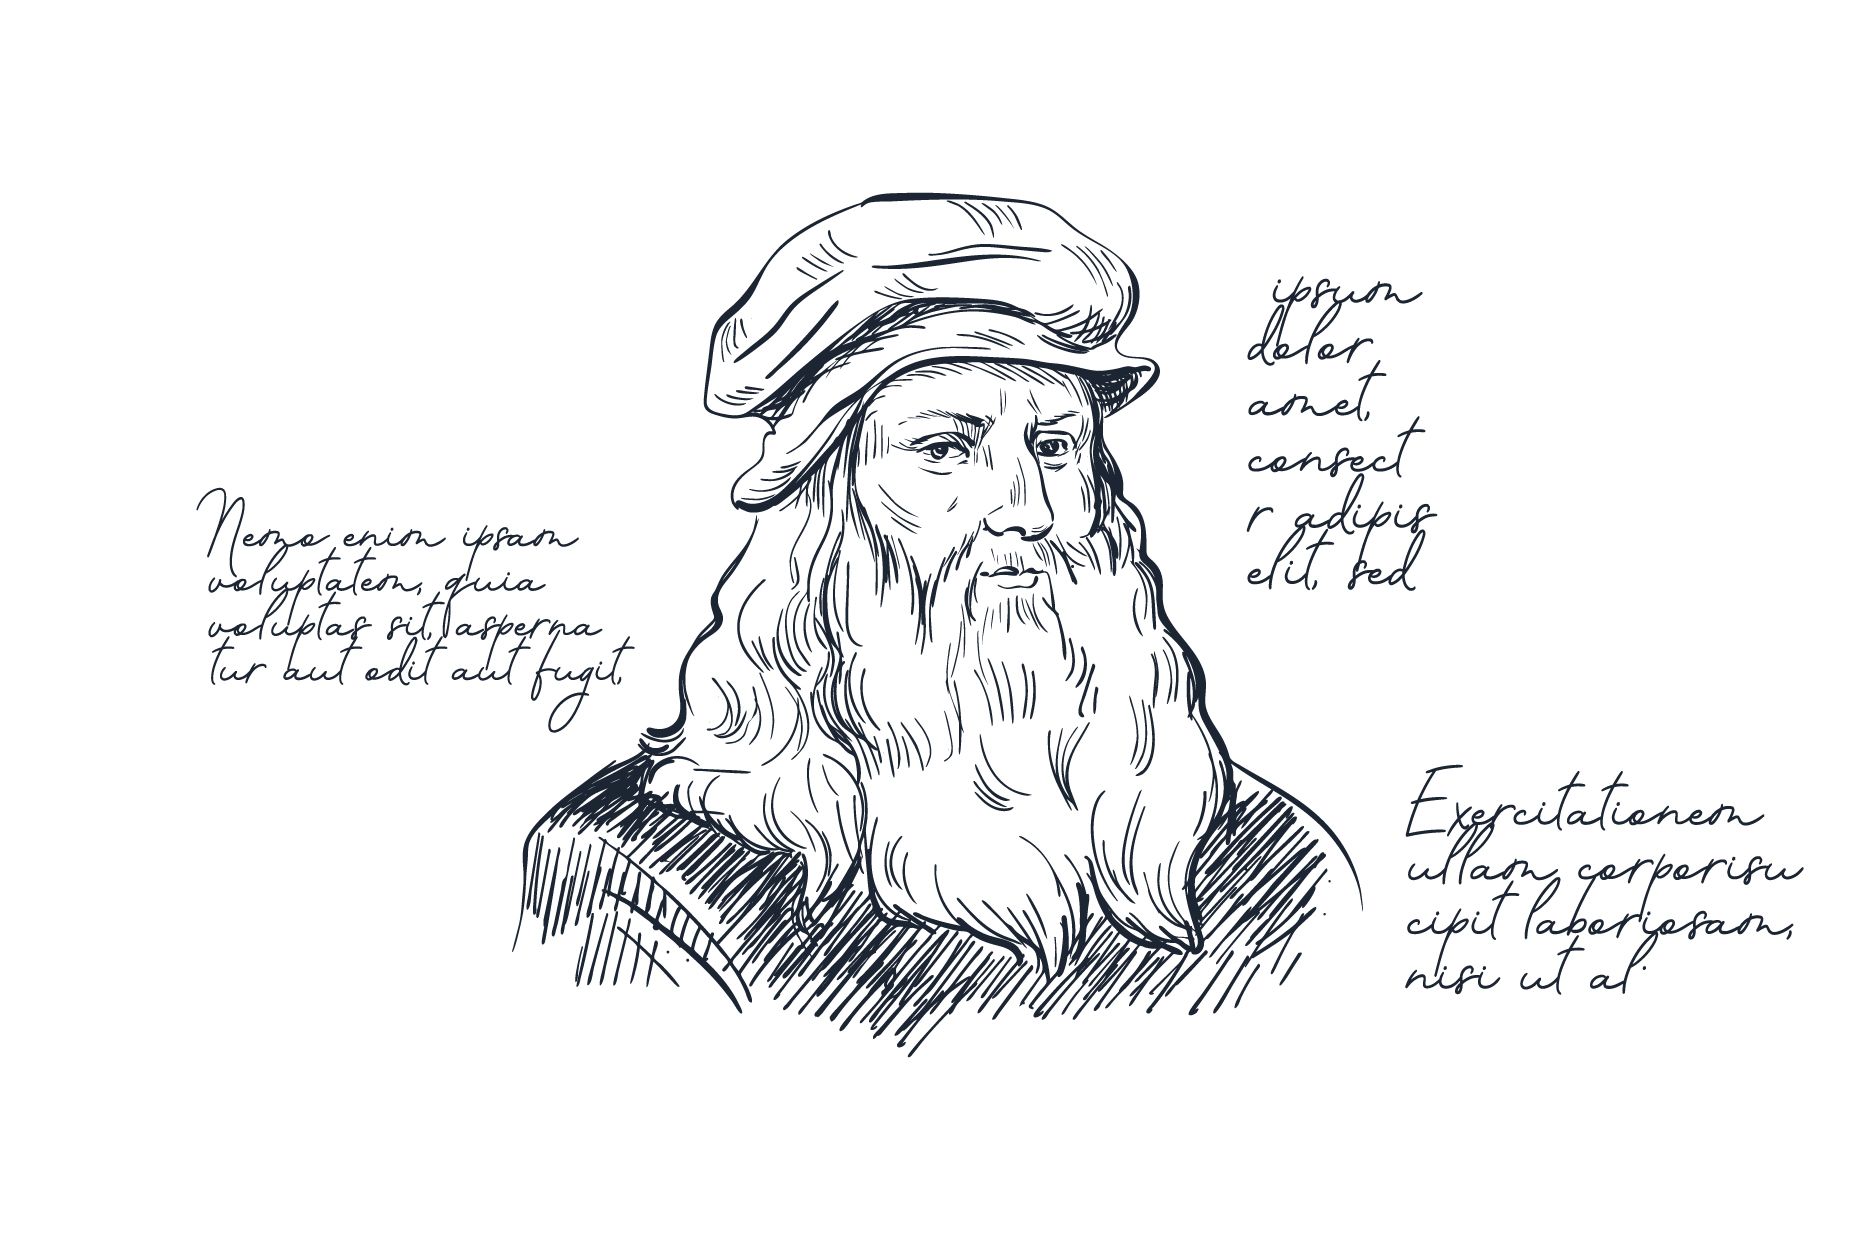 Nemo enim ipsam
voluptatem, quia
voluptas sit, asperna
tur aut odit aut fugit,
ipsum
dolor
amet,
consect
r adipis
elit, sed
Exercitationem
ullam corporisu
cipit laboriosam,
nisi ut al